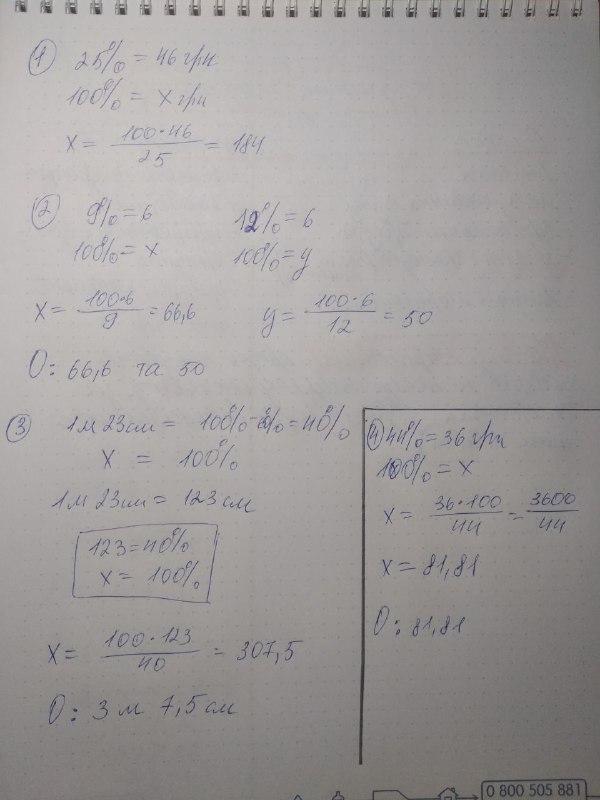 1 25% = 46 грн
100% = x грн
x = 100·46/25 = 184
2 9% = 6 12% = 6
100% = x 100% = y
x = 100·6/9 = 66,6 y = 100·6/12 = 50
О: 66,6 та 50
3 1м 23см = 100% - % = 40%
x = 100%
1м 23см = 123см
123 = 40%
x = 100%
x = 100·123/40 = 307,5
О: 3 м 7,5 см
4 44% = 36 грн
100% = x
x = 36·100/44 = 3600/44
x = 81,81
О: 81,81
0 800 505 881